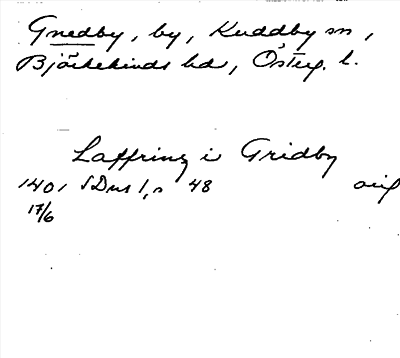 Gnedby, by, Kuddby sn,
Björkekinds hd, Österg. l.
Laffrinz i Gridby
1401 SDns 1, s 48 orig
17/6